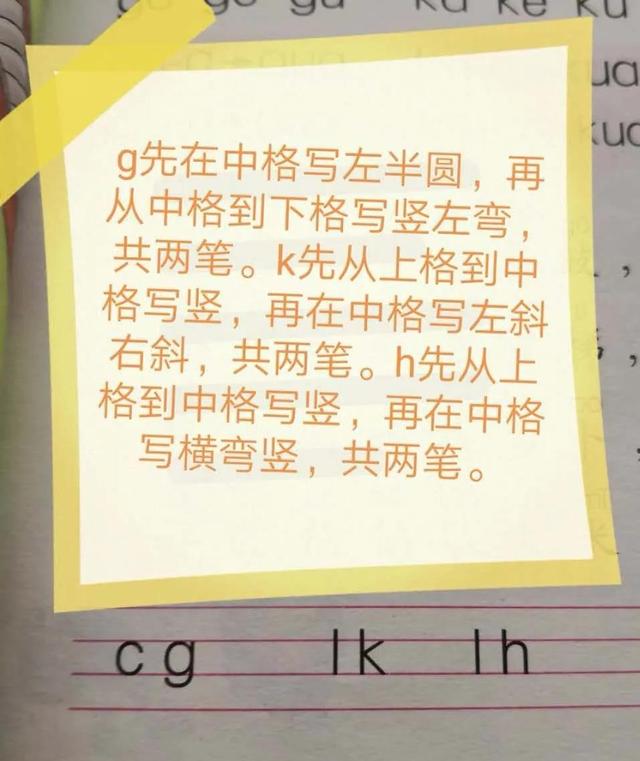 ga ka ke ku
g先在中格写左半圆，再
从中格到下格写竖左弯，
共两笔。k先从上格到中
格写竖，再在中格写左斜
右斜，共两笔。h先从上
格到中格写竖，再在中格
写横弯竖，共两笔。
c g l k l h